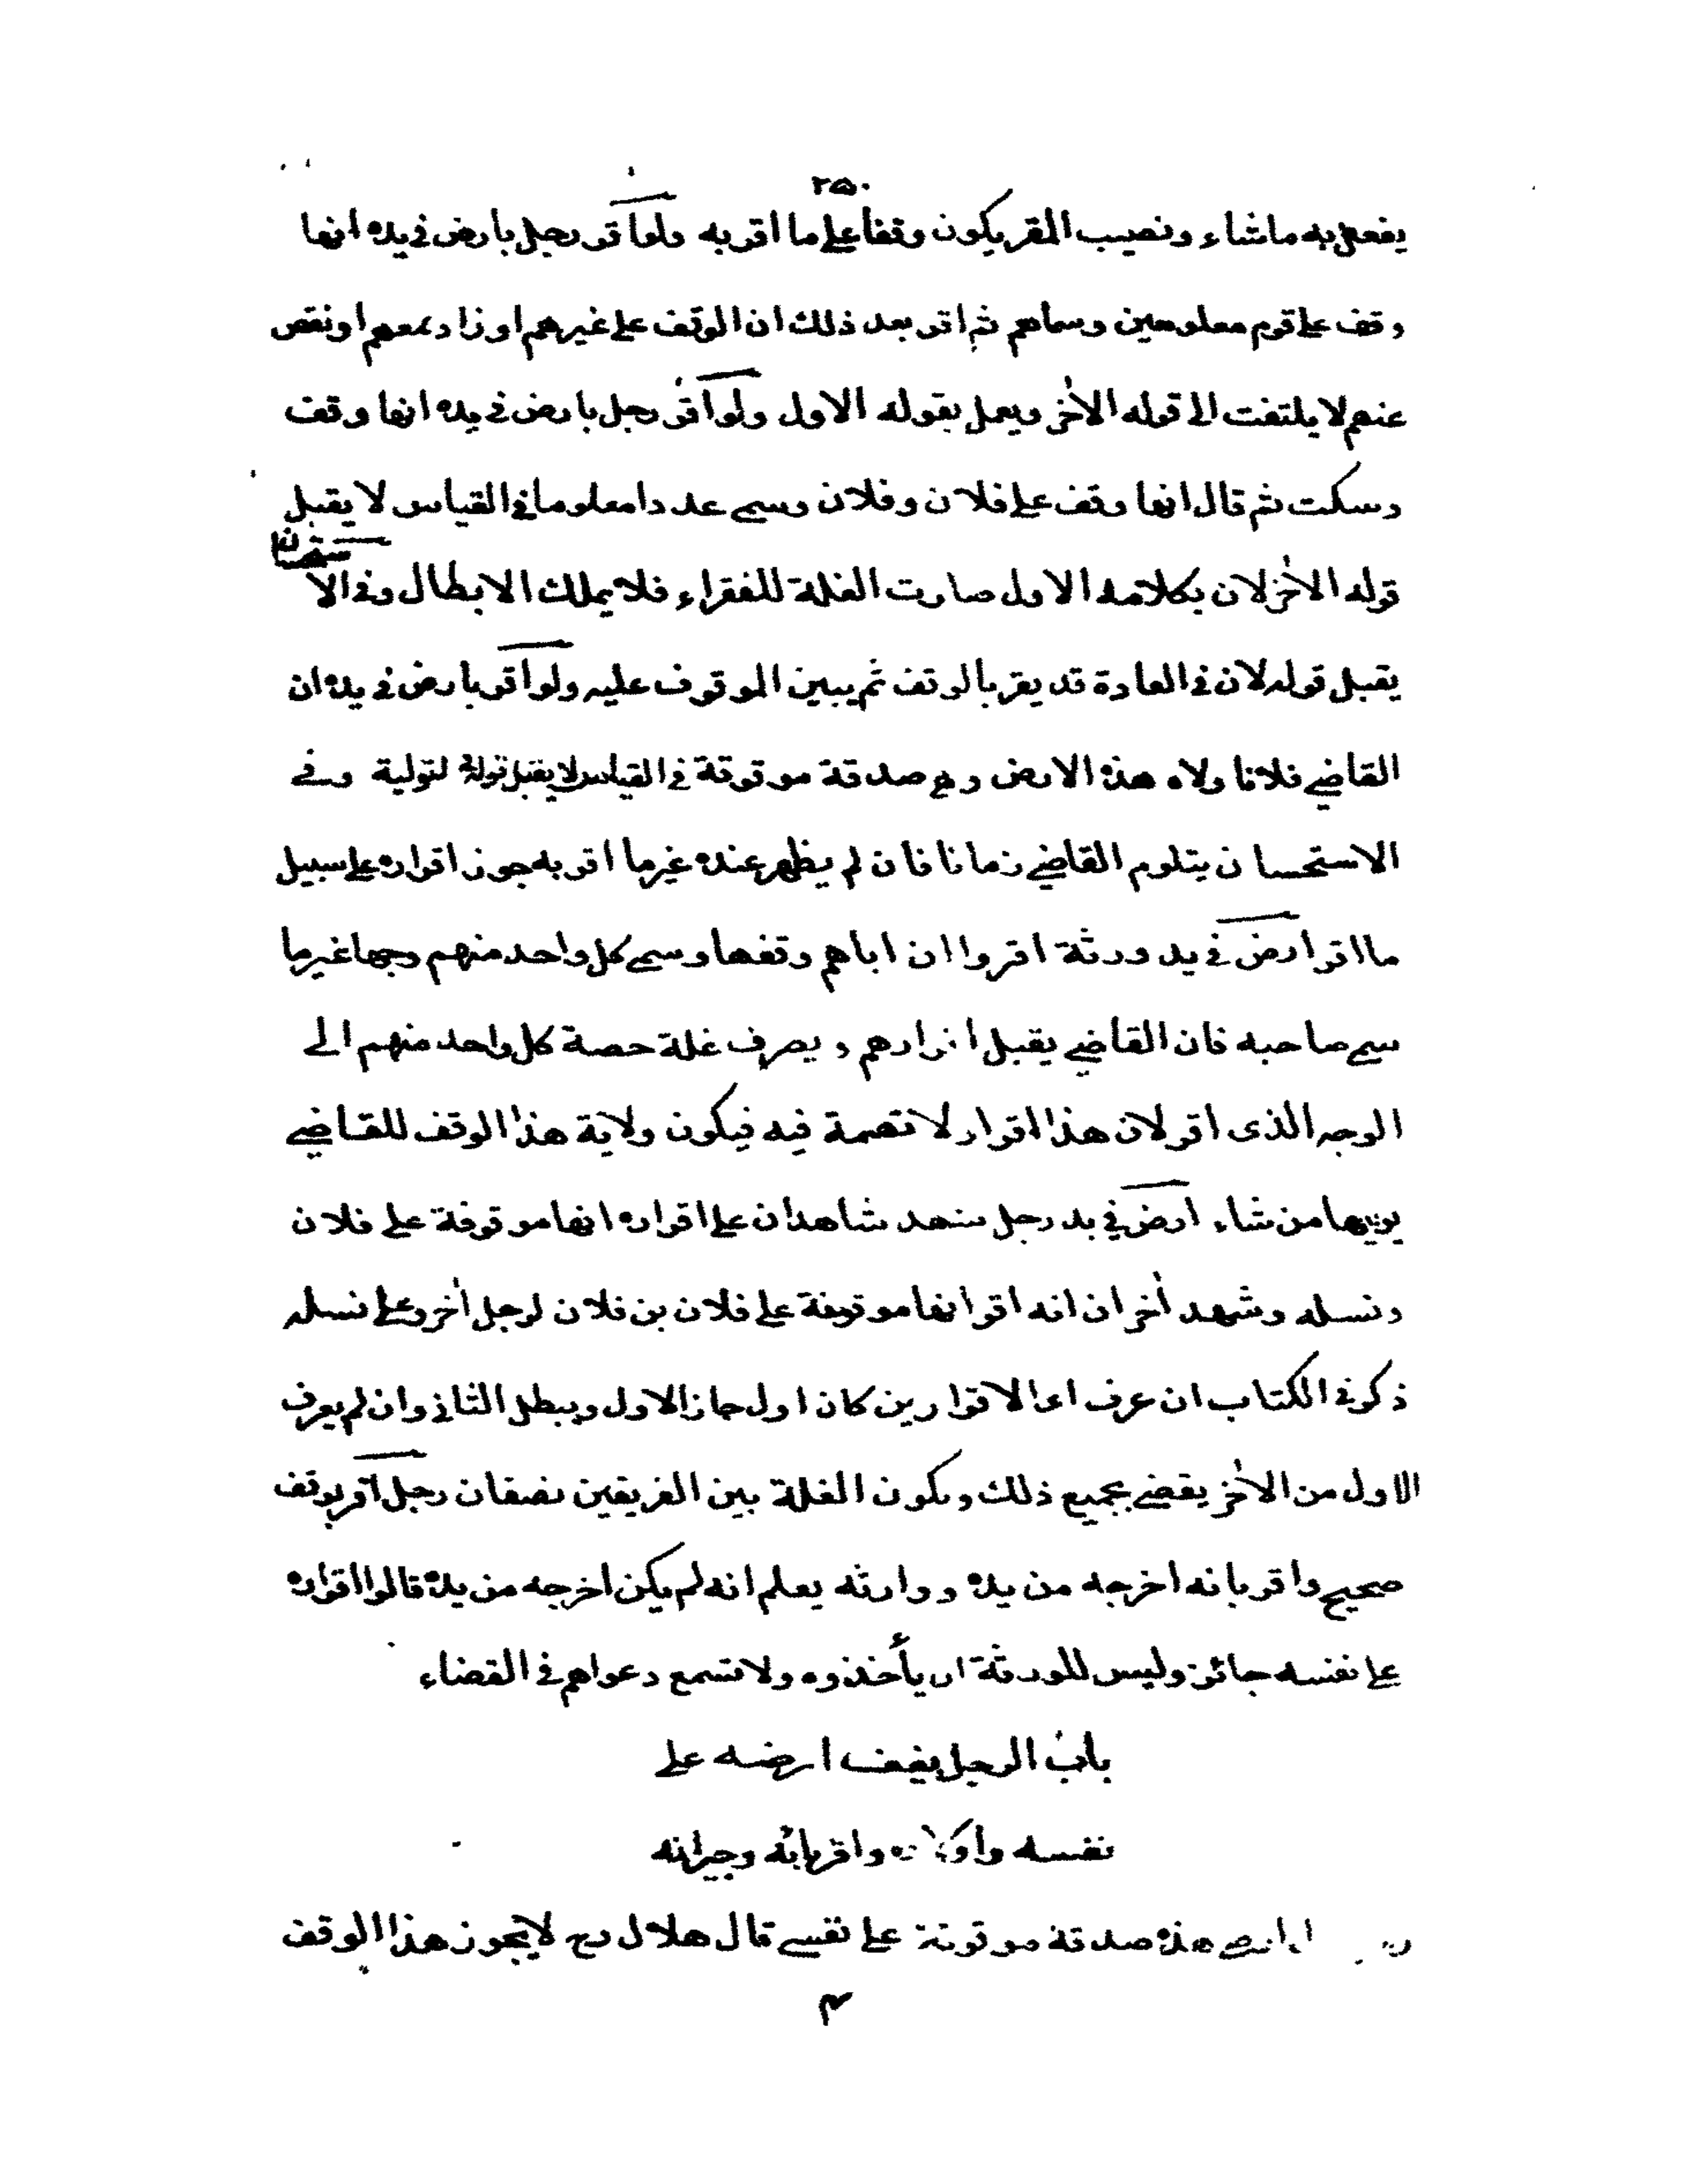 ٢٥٠
يفعل به ماشاء ونصيب المقر يكون وقفا على ما اقربه ولو اقر رجل بارض في يده انها
وقف على قوم معلومين وسماهم ثم اقر بعد ذلك ان الوقف على غيرهم او زاد معهم او نقص
عنهم لا يلتفت الى قوله الاٰخر ويعمل بقوله الاول ولو اقر رجل بارض في يده انها وقف
وسكت ثم قال انها وقف على فلان وفلان وسمى عددا معلوما في القياس لا يقبل
قوله الاٰخر لان بكلامه الاول صارت الغلة للفقراء فلا يملك الابطال وفي الا
يقبل قوله لان في العادة قد يقر بالوقف ثم يبين الموقوف عليه ولو اقر بارض في يده ان
القاضي فلانا ولاه هذه الارض وهي صدقة موقوفة في القياس لا يقبل قوله لتولية وفي
الاستحسان يتلوم القاضي زمانا فان لم يظهر عنده غير ما اقر به جوز اقراره على سبيل
ما اقر ارض في يد ورثة اقروا ان اباهم وقفها وسمى كل واحد منهم وجها غير ما
سمى صاحبه فان القاضي يقبل اقرارهم ويصرف غلة حصة كل واحد منهم الى
الوجه الذى اقر لان هذا اقرار لا تهمة فيه فيكون ولاية هذا الوقف للقاضي
يوليها من شاء ارض في يد رجل شهد شاهدان على اقراره انها موقوفة على فلان
ونسله وشهد اٰخران انه اقر انها موقوفة على فلان بن فلان لرجل اٰخر وعلى نسله
ذكر في الكتاب ان عرف اى الاقرارين كان اول جاز الاول ويبطل الثاني وان لم يعرف
الاول من الاٰخر يقضي بجميع ذلك ويكون الغلة بين الفريقين نصفان رجل اقر بوقف
صحيح واقر بانه اخرجه من يده ووارثه يعلم انه لم يكن اخرجه من يده قالوا اقراره
على نفسه جائز وليس للورثة ان يأخذوه ولا تسمع دعواهم في القضاء
باب الرجل يقف ارضه على
نفسه واولاده واقربائه وجيرانه
ارضي هذه صدقة موقوفة على نفسي قال هلال رح لا يجوز هذا الوقف